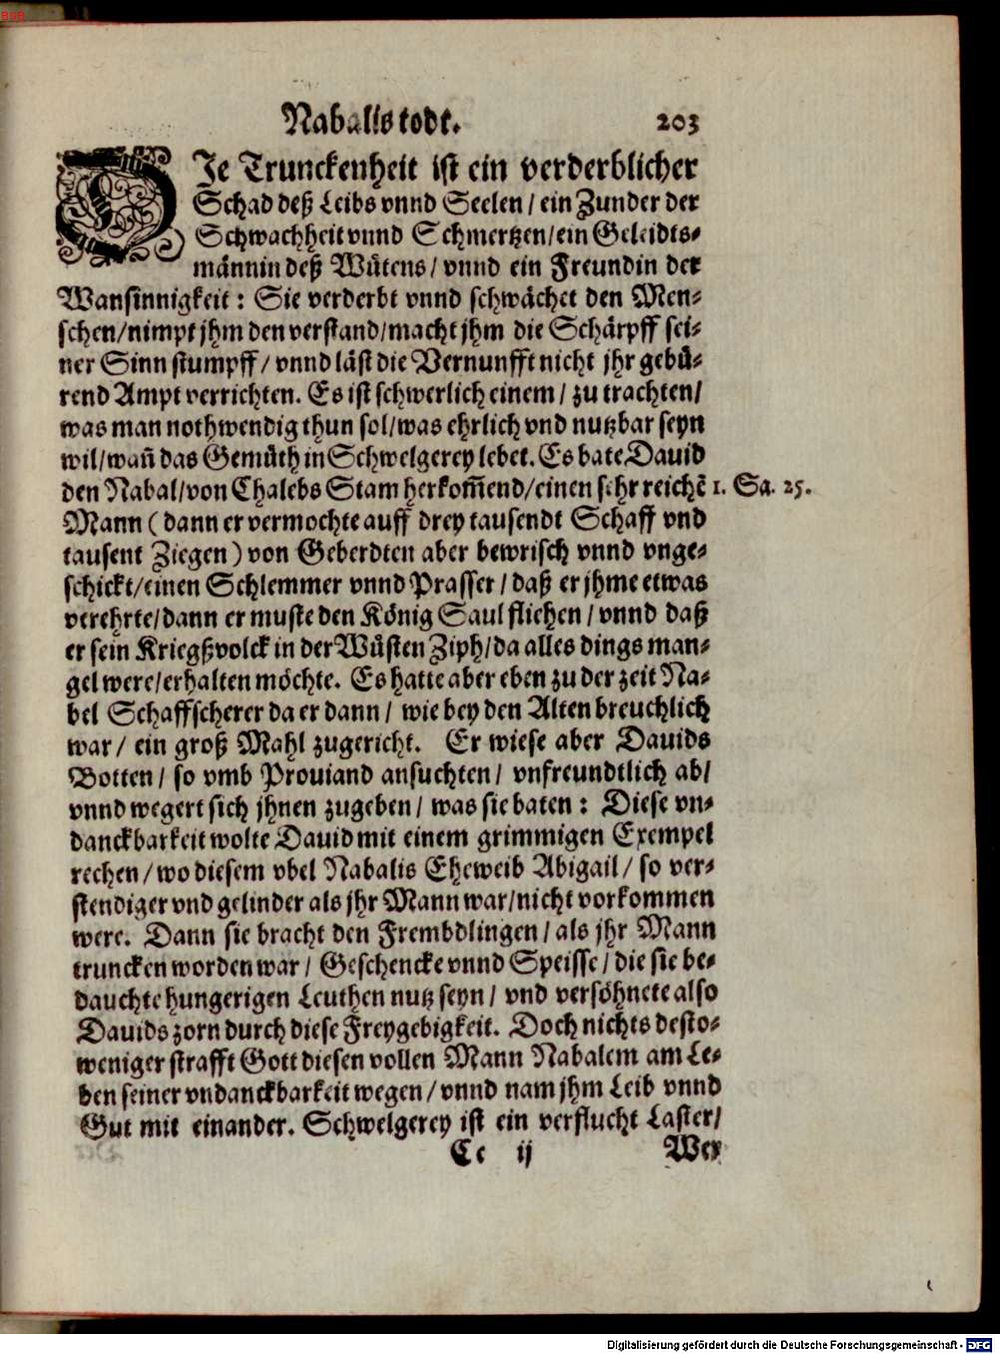 Nabalis todt. 203
DJe Trunckenheit ist ein verderblicher
Schad deß Leibs vnnd Seelen / ein Zunder der
Schwachheit vnnd Schmertzen / ein Geleidts-
männin deß Wütens / vnnd ein Freundin der
Wansinnigkeit : Sie verderbt vnnd schwächet den Men-
schen / nimpt jhm den verstand / macht jhm die Schärpff sei-
ner Sinn stumpff / vnnd läst die Vernunfft nicht jhr gebü-
rend Ampt verrichten. Es ist schwerlich einem / zu trachten /
was man nothwendig thun sol / was ehrlich vnd nutzbar seyn
wil / wañ das Gemüth in Schwelgerey lebet. Es bate Dauid
den Nabal / von Chalebs Stam herkom̃end / einen sehr reichẽ 1. Sa. 25.
Mann ( dann er vermochte auff drey tausendt Schaff vnd
tausent Ziegen ) von Geberdten aber bewrisch vnnd vnge-
schickt / einen Schlemmer vnnd Prasser / daß er jhme etwas
verehrte / dann er muste den König Saul fliehen / vnnd daß
er sein Kriegßvolck in der Wüsten Ziph / da alles dings man-
gel were / erhalten möchte. Es hatte aber eben zu der zeit Na-
bel Schaffscherer da er dann / wie bey den Alten breuchlich
war / ein groß Mahl zugericht. Er wiese aber Dauids
Botten / so vmb Prouiand ansuchten / vnfreundtlich ab /
vnnd wegert sich jhnen zugeben / was sie baten : Diese vn-
danckbarkeit wolte Dauid mit einem grimmigen Exempel
rechen / wo diesem vbel Nabalis Eheweib Abigail / so ver-
stendiger vnd gelinder als jhr Mann war / nicht vorkommen
were. Dann sie bracht den Frembdlingen / als jhr Mann
truncken worden war / Geschencke vnnd Speisse / die sie be-
dauchte hungerigen Leuthen nutz seyn / vnd versöhnete also
Dauids zorn durch diese Freygebigkeit. Doch nichts desto-
weniger strafft Gott diesen vollen Mann Nabalem am Le-
ben seiner vndanckbarkeit wegen / vnnd nam jhm Leib vnnd
Gut mit einander. Schwelgerey ist ein verflucht Laster /
Cc ij Wer
Digitalisierung gefördert durch die Deutsche Forschungsgemeinschaft - DFG